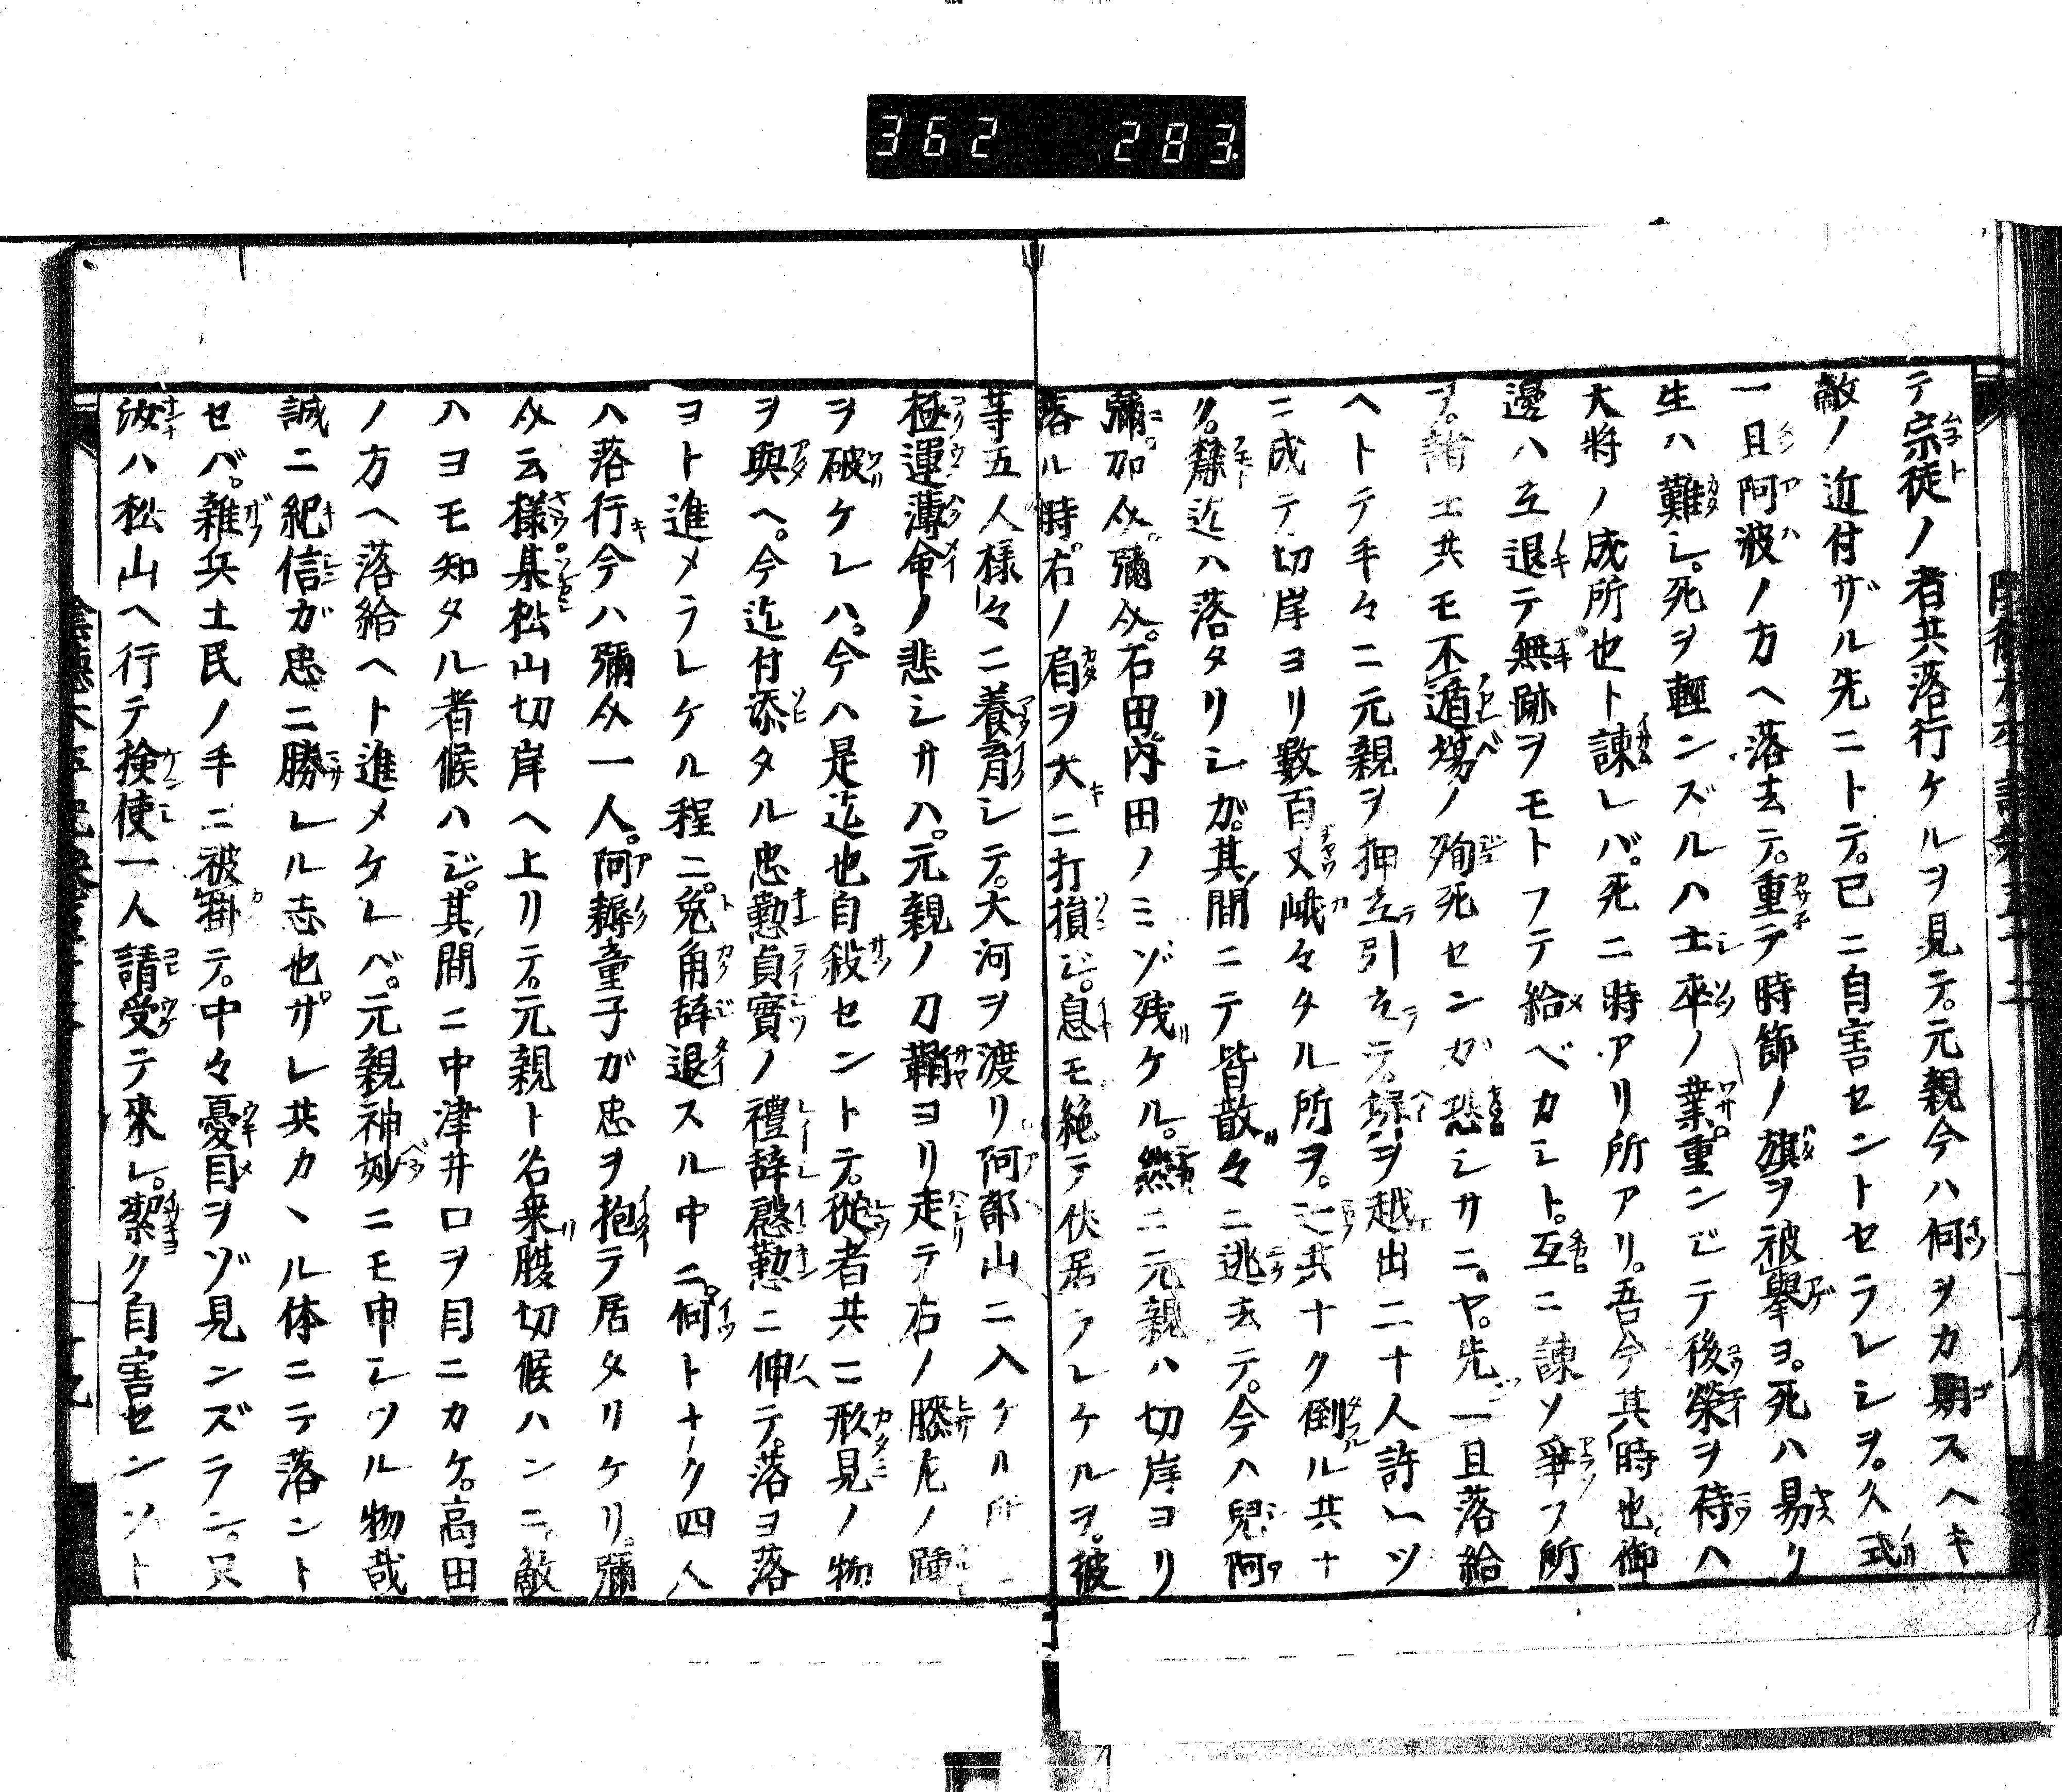 362 283
テ宗徒ノ者共落行ケルヲ見テ。元親今ハ何ヲカ期スヘキ
敵ノ近付ザル先ニトテ。已ニ自害セントセラレシヲ。久式
一旦阿波ノ方ヘ落去テ。重テ時節ノ旗ヲ被擧ヨ。死ハ易ク
生ハ難シ。死ヲ輕ンズルハ士卒ノ業。重ンジテ後榮ヲ待ハ
大将ノ成所也ト諫レバ。死ニ時アリ所アリ。吾今其時也。御
邊ハ立退テ無跡ヲモトフテ給ベカシト。互ニ諫ソ爭フ所
ヲ。諸士共モ不遁場ノ殉死センガ恐シサニ。ヤ。先一旦落給
ヘトテ手々ニ元親ヲ押立引立テ。塀ヲ越出二十人許一ツ
ニ成テ切岸ヨリ數百丈峨々タル所ヲ。共ナク倒ル共ナ
ク。麓近ハ落タリシガ。其間ニテ皆散々ニ逃去テ。今ハ兒阿
彌。加兵。彌兵。石田内田ノミゾ残ケル。然ニ元親ハ切岸ヨリ
落ル時。右ノ肩ヲ大ニ打損ジ。息モ絶テ伏居ラレケルヲ。彼
等五人様々ニ養育シテ。大河ヲ渡リ阿部山ニ入ケル所ニ
極運薄命ノ悲シサハ。元親ノ刀鞘ヨリ走テ右ノ膝尤ノ踵
ヲ破ケレハ。今ハ是迄也自殺セントテ。從者共ニ形見ノ物
ヲ與ヘ。今迄付添タル忠懃貞實ノ禮辞慇懃ニ伸テ。落ヨ落
ヨト進メラレケル程ニ。兎角辞退スル中ニ。何トナク四人
ハ落行今ハ彌兵一人。阿耨童子ガ忠ヲ抱テ居タリケリ。彌
兵云様。某松山切岸ヘ上リテ。元親ト名乗腹切候ハンニ。敵
ハヨモ知タル者候ハジ。其間ニ中津井口ヲ目ニカケ。高田
ノ方ヘ落給ヘト進メケレバ。元親神妙ニモ申シツル物哉
誠ニ紀信ガ忠ニ勝レル志也。サレ共カヽル体ニテ落ント
セバ。雜兵土民ノ手ニ被掛テ。中々憂目ヲゾ見ンズラン。只
汝ハ松山ヘ行テ検使一人請受テ來レ。潔ク自害センソト